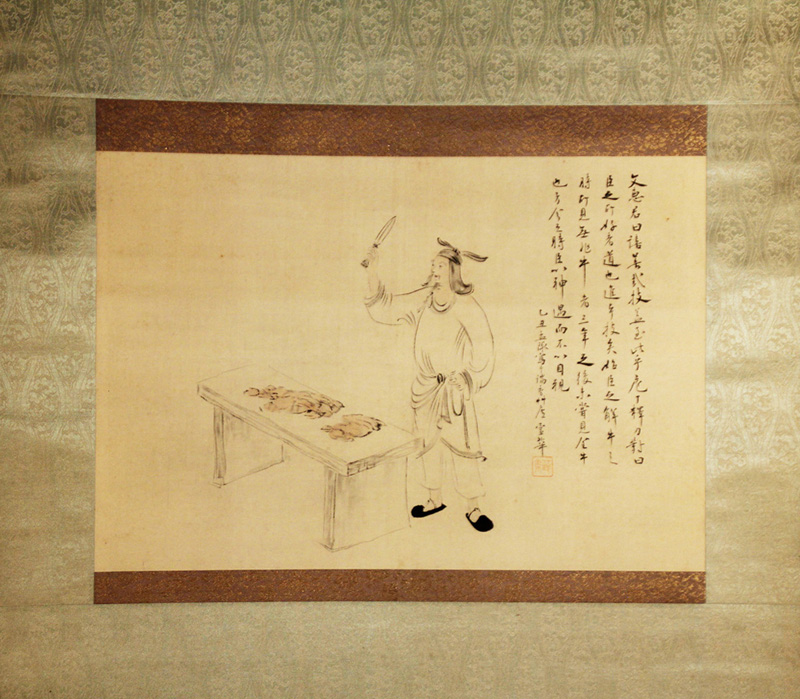 文惠君曰譆善哉技蓋至此乎庖丁釋刀對曰
臣之所好者道也進乎技矣始臣之解牛之
時所見無非牛者三年之後未嘗見全牛
也方今之時臣以神遇而不以目視
乙丑孟秋寫